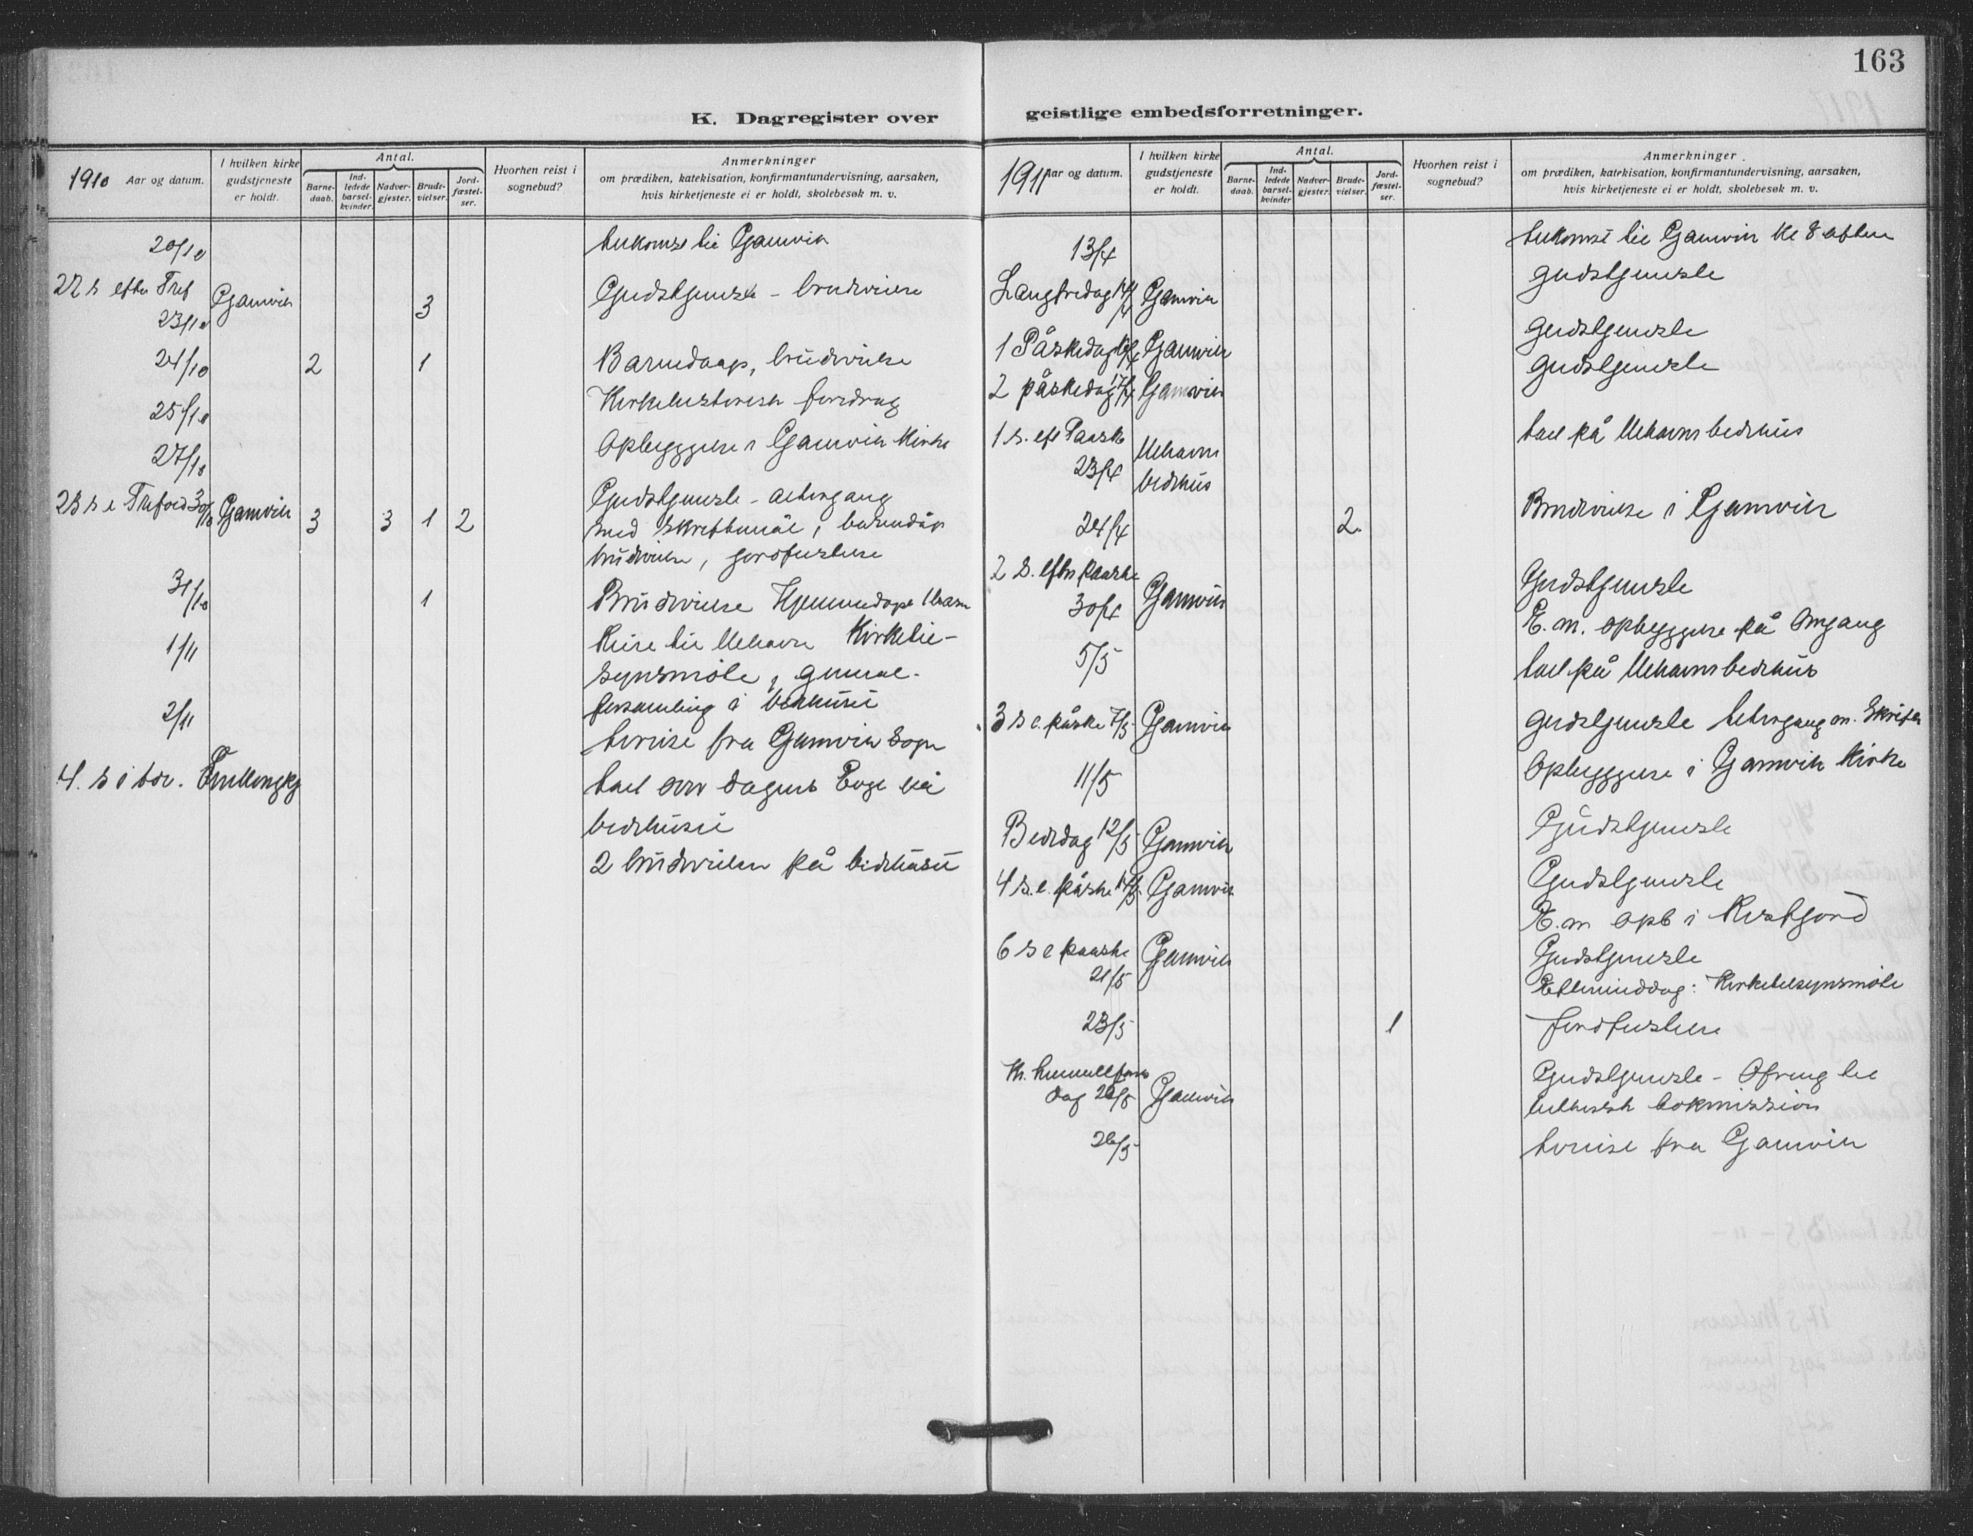 163
K. Dagregister over geistlige embedsforretninger.
1910 Aar og datum.
I hvilken kirke gudstjeneste er holdt.
Antal.
Barnedaab.
Indledede barselkvinder.
Nadvergjester.
Brudevielser.
Jordfæstelser.
Hvorhen reist i sognebud?
Anmerkninger
om prædiken, katekisation, konfirmantundervisning, aarsaken,
hvis kirketjeneste ei er holdt, skolebesøk m. v.
20/10 Ankomst til Gamvik
22 s efter Tref
23/10 Gamvik 3 Gudstjeneste - brudvielse
24/10 2 1 Barnedaap, brudvielse
25/10 Kirkehistorisk foredrag
27/10 Opbyggelse i Gamvik Kirke
23 s e Trefold 30/10 Gamvik 3 3 1 2 Gudstjeneste - altergang
med skriftemål, barnedåp
brudvielse, jordfestelse
31/10 1 Brudvielse Hjemmedøpt 1 barn
1/11 Reise til Mehavn Kirketil-
synsmøte, general-
forsamling i bedhuset
2/11 Avreise fra Gamvik Sogn
4. s i adv.
tale over dagens Evgl på
bedhuset
2 brudvielser på bedhuset
1911 Aar og datum.
I hvilken kirke gudstjeneste er holdt.
Antal.
Barnedaab.
Indledede barselkvinder
Nadvergjester.
Brudevielser.
Jordfæstelser.
Hvorhen reist i sognebud?
Anmerkninger.
om prædiken, katekisation, konfirmantundervisning, aarsaken,
hvis kirketjeneste ei er holdt, skolebesøk m. v.
13/4 Ankomst til Gamvik kl 8 aften
Langfredag 14/4 Gamvik Gudstjeneste
1 Påskedag 16/4 Gamvik Gudstjeneste
2 påskedag 17/4 Gamvik Gudstjeneste
1 s. eft Paaske
23/4 Mehavn bedhus tale på Mehavns bedhus
24/4 2 Brudvielse i Gamvik
2 s. efter paaske
30/4 Gamvik Gudstjeneste
E. m. opbyggelse på Omgang
5/5 tale på Mehavns bedhus
3 s e. påske 7/5 Gamvik Gudstjeneste Altergang m. Skriftem
11/5 Opbyggelse i Gamvik Kirke
Bededag 12/5 Gamvik Gudstjeneste
4 s. e. påske 14/5 Gamvik Gudstjeneste
E. m opb i
6 s e paaske
21/5 Gamvik Gudstjeneste
Ettermiddag: Kirketilsynsmøte
23/5 1 Jordfestelse
Kr. himmelfarts
dag 25/5 Gamvik Gudstjeneste - Ofring til
luthersk bokmission
26/5 Avreise fra Gamvik